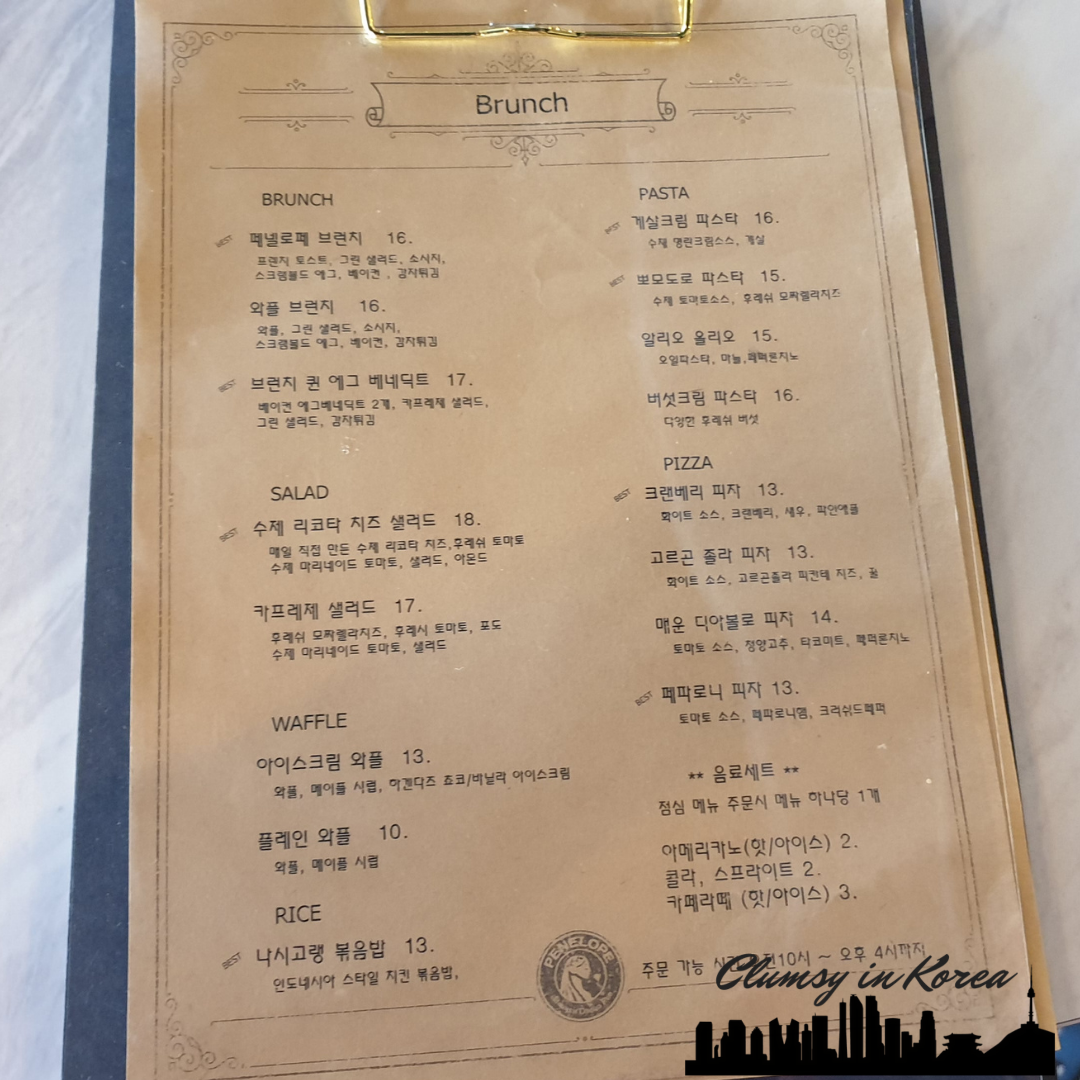 Brunch
BRUNCH
BEST 페넬로페 브런치 16.
프렌치 토스트, 그린 샐러드, 소시지,
스크램블드 에그, 베이컨 , 감자튀김
와플 브런치 16.
와플, 그린 샐러드, 소시지,
스크램블드 에그, 베이컨, 감자튀김
BEST 브런치 퀸 에그 베네딕트 17.
베이컨 에그베네딕트 2개, 카프레제 샐러드,
그린 샐러드, 감자튀김
SALAD
BEST 수제 리코타 치즈 샐러드 18.
매일 직접 만든 수제 리코타 치즈,후레쉬 토마토
수제 마리네이드 토마토, 샐러드, 아몬드
카프레제 샐러드 17.
후레쉬 모짜렐라치즈, 후레시 토마토, 포도
수제 마리네이드 토마토, 샐러드
WAFFLE
아이스크림 와플 13.
와플, 메이플 시럽, 하겐다즈 쵸코/바닐라 아이스크림
플레인 와플 10.
와플, 메이플 시럽
RICE
BEST 나시고랭 볶음밥 13.
인도네시아 스타일 치킨 볶음밥,
PASTA
BEST 게살크림 파스타 16.
수제 명란크림소스, 게살
BEST 뽀모도로 파스타 15.
수제 토마토소스, 후레쉬 모짜렐라치즈
알리오 올리오 15.
오일파스타, 마늘,페퍼론치노
버섯크림 파스타 16.
다양한 후레쉬 버섯
PIZZA
BEST 크랜베리 피자 13.
화이트 소스, 크랜베리, 새우, 파인애플
고르곤 졸라 피자 13.
화이트 소스, 고르곤졸라 피칸테 치즈, 꿀
매운 디아볼로 피자 14.
토마토 소스, 청양고추, 타코미트, 페퍼론치노
BEST 페파로니 피자 13.
토마토 소스, 페파로니햄, 크러쉬드페퍼
** 음료세트 **
점심 메뉴 주문시 메뉴 하나당 1개
아메리카노(핫/아이스) 2.
콜라, 스프라이트 2.
카페라떼 (핫/아이스) 3.
주문 가능 10시 ~ 오후 4시까지
PENELOPE
Clumsy in Korea